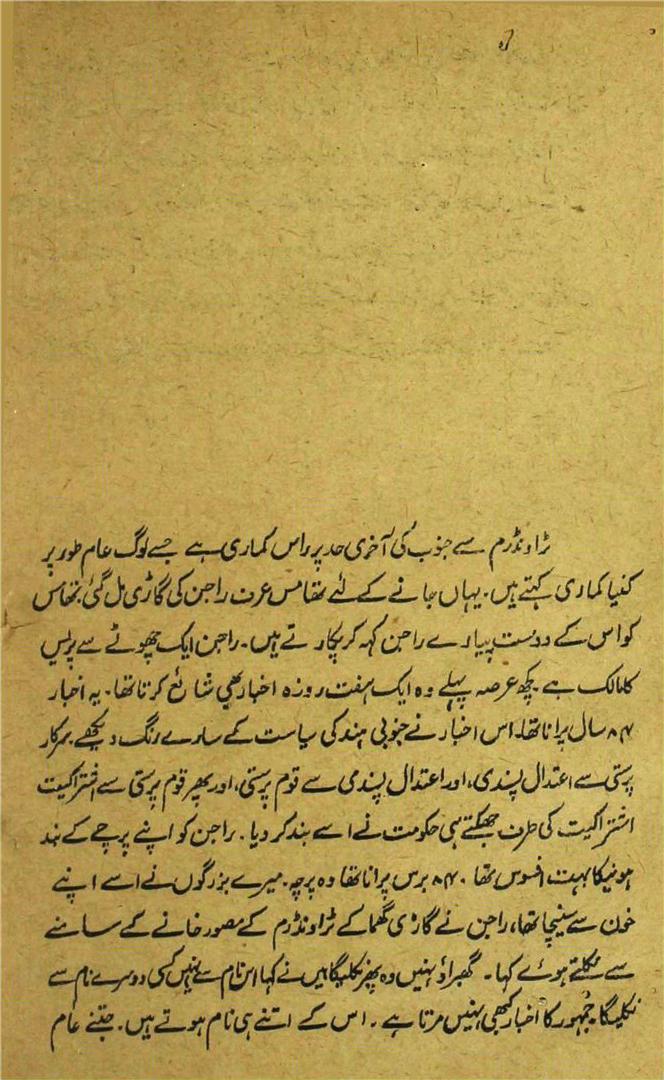 ٹراونڈرم سے جنوب کی آخری حد پر راس کماری ہے جسے لوگ عام طور پر
کنیا کماری کہتے ہیں۔ یہاں جانے کے لئے تھامس عرف راجن کی گاڑی مل گئی۔ تھامس
کو اس کے دوست پیار سے راجن کہہ کر پکارتے ہیں۔ راجن ایک چھوٹے سے پریس
کا مالک ہے کچھ عرصہ پہلے وہ ایک ہفت روزہ اخبار بھی شائع کرتا تھا۔ یہ اخبار
۸۴ سال پرانا تھا۔ اس اخبار نے جنوبی ہند کی سیاست کے سارے رنگ دیکھے۔ سرکار
پرستی سے اعتدال پسندی، اور اعتدال پسندی سے قوم پرستی، اور پھر قوم پرستی سے اشتراکیت
اشتراکیت کی طرف جھکتے ہی حکومت نے اسے بند کر دیا۔ راجن کو اپنے پرچے کے بند
ہونیکا بہت افسوس تھا۔ ۸۴ برس پرانا تھا وہ پرچہ۔ میرے بزرگوں نے اسے اپنے
خون سے سینچا تھا، راجن نے گاڑی گھما کے ٹراونڈرم کے مصور خانے کے سامنے
سے نکلتے ہوئے کہا۔ گھبراؤ نہیں وہ پھر نکلیگا میں نے کہا اس نام سے نہیں کسی دوسرے نام سے
نکلیگا۔ جُمہور کا اخبار کبھی نہیں مرتا ہے۔ اس کے اتنے ہی نام ہوتے ہیں۔ جتنے عام